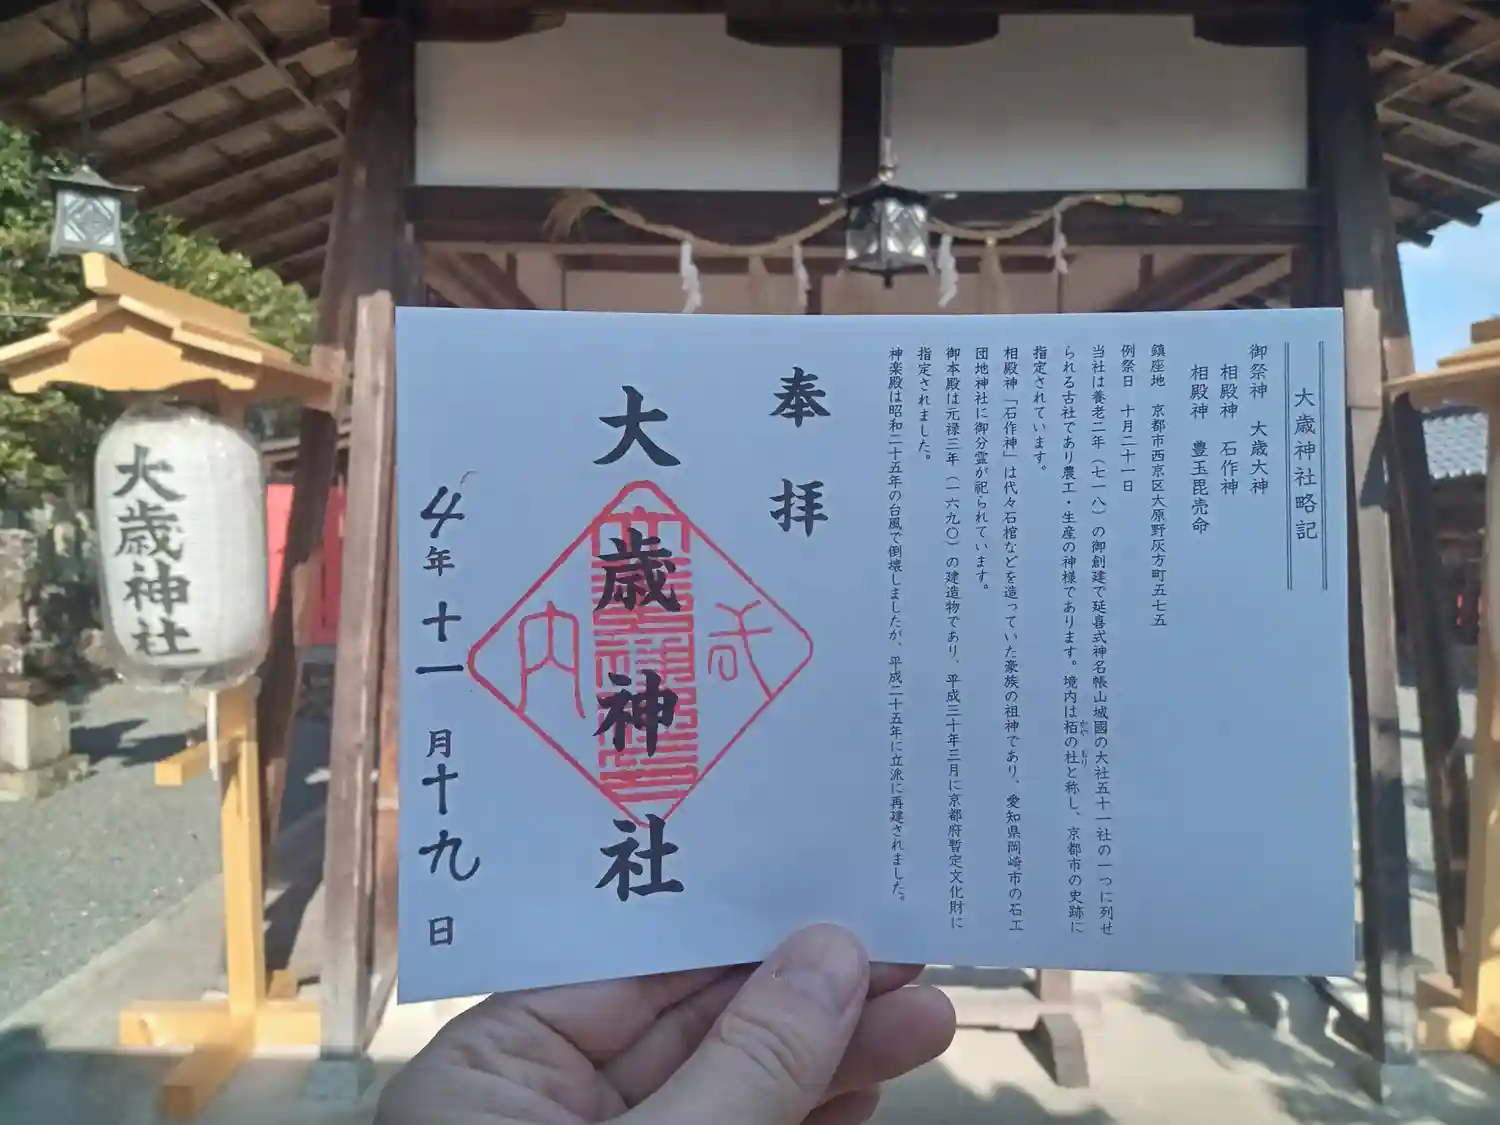 大歳神社略記
御祭神　大歳大神
相殿神　石作神
相殿神　豊玉毘売命
鎮座地　京都市西京区大原野灰方町五七五
例祭日　十月二十一日
当社は養老二年（七一八）の御創建で延喜式神名帳山城國の大社五十一社の一つに列せ
られる古社であり農工・生産の神様であります。境内は栢の杜と称し、京都市の史跡に
かや　もり
指定されています。
相殿神「石作神」は代々石棺などを造っていた豪族の祖神であり、愛知県岡崎市の石工
団地神社に御分霊が祀られています。
御本殿は元禄三年（一六九〇）の建造物であり、平成三十年三月に京都府暫定文化財に
指定されました。
神楽殿は昭和二十五年の台風で倒壊しましたが、平成二十五年に立派に再建されました。
奉拝
大歳神社
4年十一月十九日
大歳神社